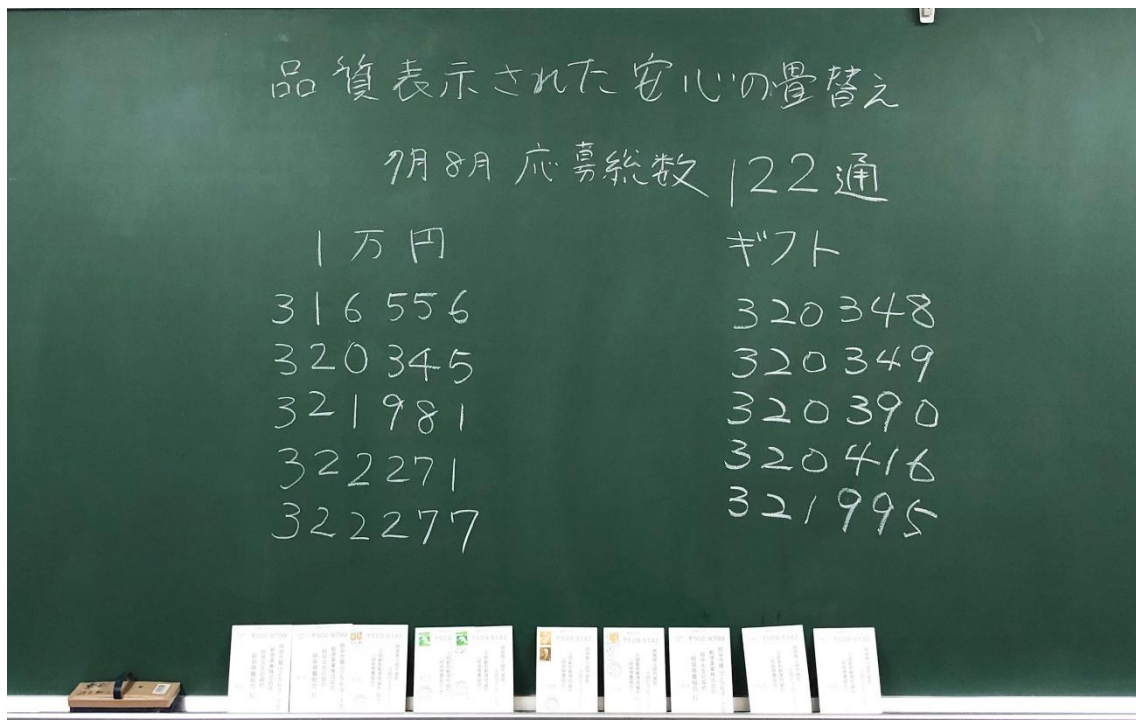 品質表示された安心の畳替え
7月8月 応募総数 122通
1万円
316556
320345
321981
322271
322277
ギフト
320348
320349
320390
320416
321995